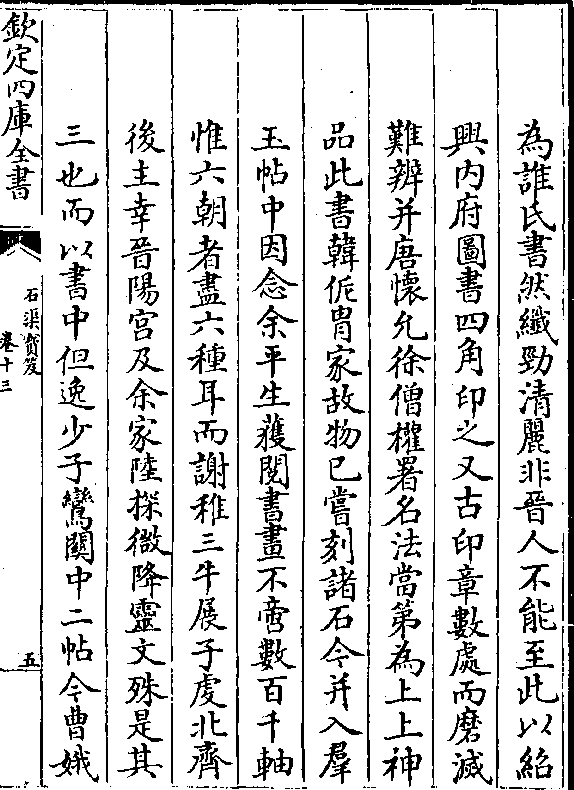 為誰氏書然纎勁清麗非晉人不能至此以紹
興内府圖書四角印之又古印章數處而磨滅
難辨并唐懐允徐僧權署名法當第為上上神
品此書韓侂胄家故物已嘗刻諸石今并入羣
玉帖中因念余平生獲閲書畫不啻數百千軸
惟六朝者盡六種耳而謝稚三牛展子䖍北齊
後主幸晉陽宫及余家陸探微降靈文殊是其
三也而以書中但逸少子鸞闗中二帖今曹娥
欽定四庫全書
石渠寳笈
卷十三
五